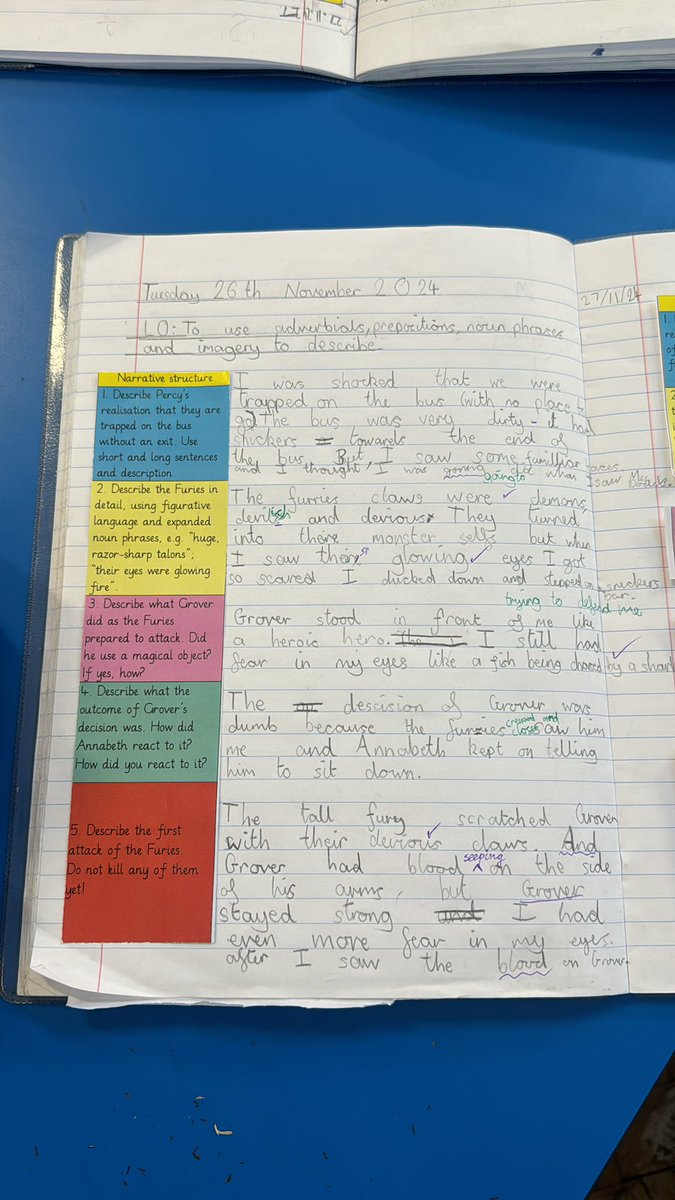 22.11.24
Tuesday 26th November 2024
27/11/24
LO: To use adverbials, prepositions, noun phrases
and imagery to describe.
Narrative structure
1. Describe Percy's
realisation that they are
trapped on the bus
without an exit. Use
short and long sentences
and description.
I was shocked that we were
trapped on the bus (with no place to
go) The bus was very dirty - it had
snickers towards the end of
the bus. But, I saw some familiar faces
and I thought, I was goning off when
going to
I saw Mrs Dodds.
2. Describe the Furies in
detail, using figurative
language and expanded
noun phrases, e.g. "huge,
razor-sharp talons";
"their eyes were glowing
fire".
The furries claws were demons,
devilish and devious. They turned
into there monster selfs but when
I saw their glowing eyes I got
so scared I ducked down and stepped on a snickers
bar.
3. Describe what Grover
did as the Furies
prepared to attack. Did
he use a magical object?
If yes, how?
trying to defend me
Grover stood in front of me like
a heroic hero. I still had
fear in my eyes like a fish being chased by a shark
4. Describe what the
outcome of Grover's
decision was. How did
Annabeth react to it?
How did you react to it?
The descision of Grover was
dumb because the furies creped and closer saw him
me and Annabeth kept on telling
him to sit down.
5. Describe the first
attack of the Furies.
Do not kill any of them
yet!
The tall fury scratched Grover
with their devious claws. And
Grover had blood seeping on the side
of his arms, but Grover
stayed strong I had
even more fear in my eyes.
after I saw the blood on Grover